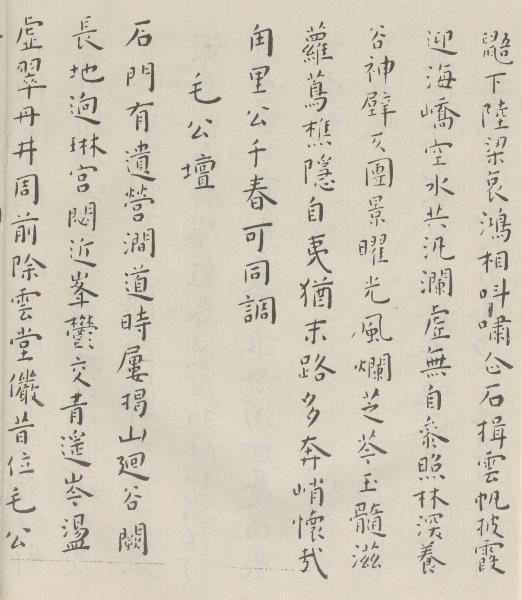 鼯下陸梁哀鴻相叫嘯仚石揖雲帆披霞
迎海嶠空水共汎瀾虛無自參照林深養
谷神壁仄團景曜光風爛芝苓玉髓滋
蘿蔦樵隱自夷猶末路多奔峭懷哉
甪里公千春可同調
毛公壇
石門有遺營澗道時屢揭山廻谷闕
長地逈琳宮閟近峯鬱交青遥岑盪
虛翠丹井周前除雲堂儼昔位毛公